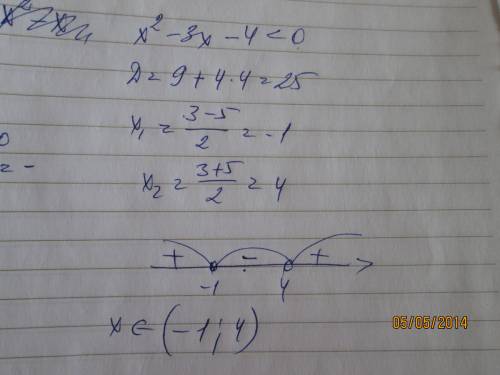 x² - 3x - 4 < 0
D = 9 + 4·4 = 25
x₁ = (3-5)/2 = -1
x₂ = (3+5)/2 = 4
+ - +
-1 4
x ∈ (-1; 4)
05/05/2014